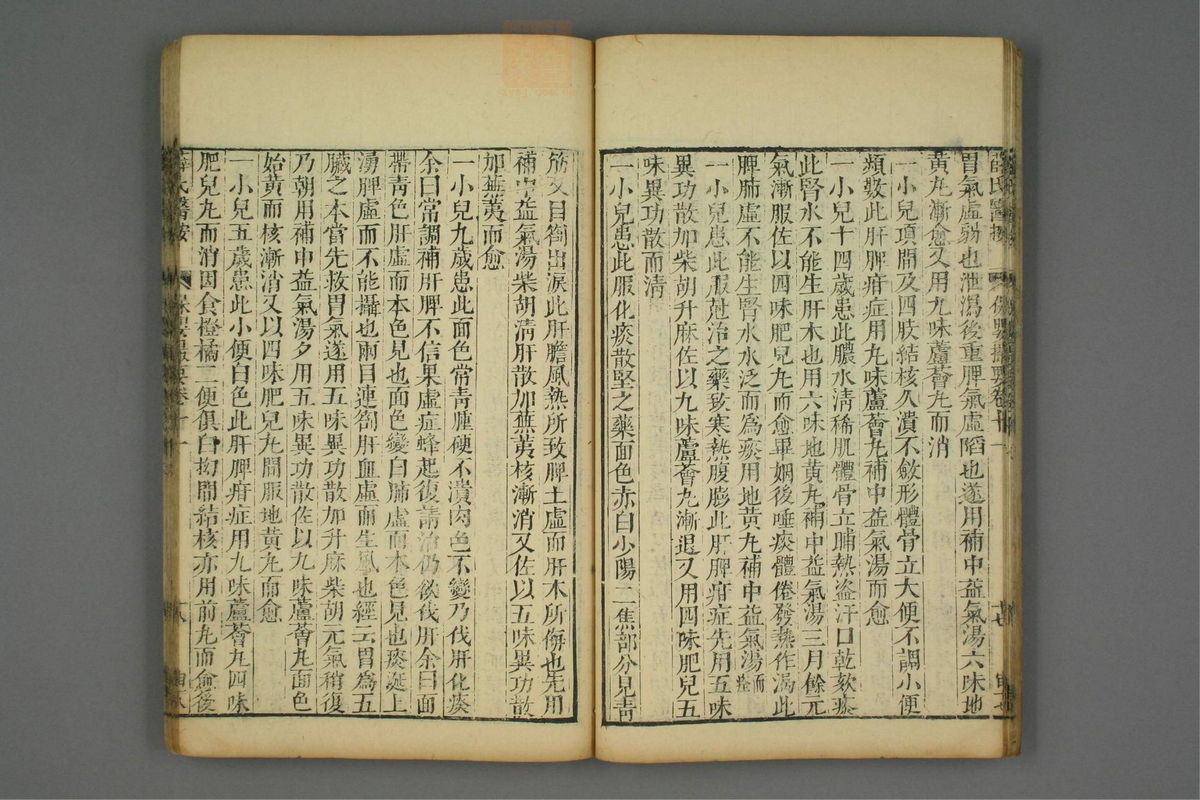 薛氏醫按 保嬰撮要卷十一
胃氣虛弱也泄瀉後重脾氣虛陷也遂用補中益氣湯六味地
黃丸漸愈又用九味蘆薈丸而消
一小兒項間及四肢結核久潰不斂形體骨立大便不調小便
頻數此肝脾疳症用九味蘆薈丸補中益氣湯而愈
一小兒十四歲患此膿水清稀肌體骨立晡熱盗汗口乾欬痰
此腎水不能生肝木也用六味地黃丸補中益氣湯三月餘元
氣漸服佐以四味肥兒丸而愈畢姻後唾痰體倦發熱作渴此
脾肺虛不能生腎水水泛而為痰用地黃丸補中益氣湯而痊
一小兒患此服尅治之藥致寒熱腹膨此肝脾疳症先用五味
異功散加柴胡升麻佐以九味蘆薈丸漸退又用四味肥兒五
味異功散而清
一小兒患此服化痰散堅之藥面色赤白少陽二焦部分見青
筋又目劄出淚此肝膽風熱所致脾土虛而肝木所侮也先用
補中益氣湯柴胡清肝散加蕪荑核漸消又佐以五味異功散
加蕪荑而愈
一小兒九歲患此面色常青腫硬不潰肉色不變乃伐肝化痰
余曰常調補肝脾不信果虛症蜂起復請治仍欲伐肝余曰面
帶青色肝虛而本色見也面色變白肺虛而本色見也痰涎上
湧脾虛而不能攝也兩目連劄肝血虛而生風也經云胃為五
臟之本當先救胃氣遂用五味異功散加升麻柴胡元氣稍復
乃朝用補中益氣湯夕用五味異功散佐以九味蘆薈丸面色
始黃而核漸消又以四味肥兒丸間服地黃丸而愈
一小兒五歲患此小便白色此肝脾疳症用九味蘆薈丸四味
肥兒丸而消因食橙橘二便俱白拗間結核亦用前丸而愈後
薛氏醫按 保嬰撮要卷十一